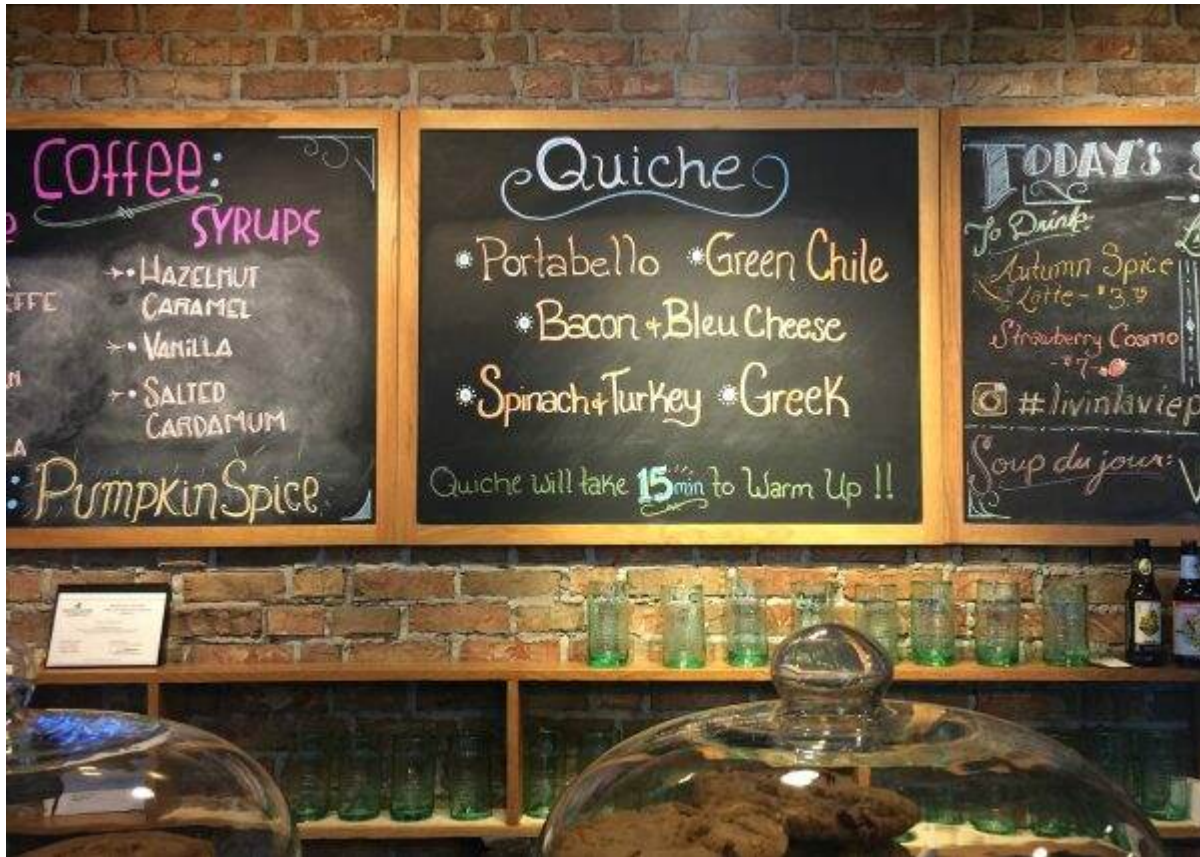 Coffee:
SYRUPS
HAZELNUT
CARAMEL
VANILLA
SALTED
CARDAMUM
PumpkinSpice
Quiche
Portabello
Green Chile
Bacon + Bleu Cheese
Spinach + Turkey
Greek
Quiche will take 15 min to Warm Up !!
TODAY'S S
To Drink:
Autumn Spice
Latte -
Strawberry Cosmo
- $7 -
#livinlaviep
Soup du jour: